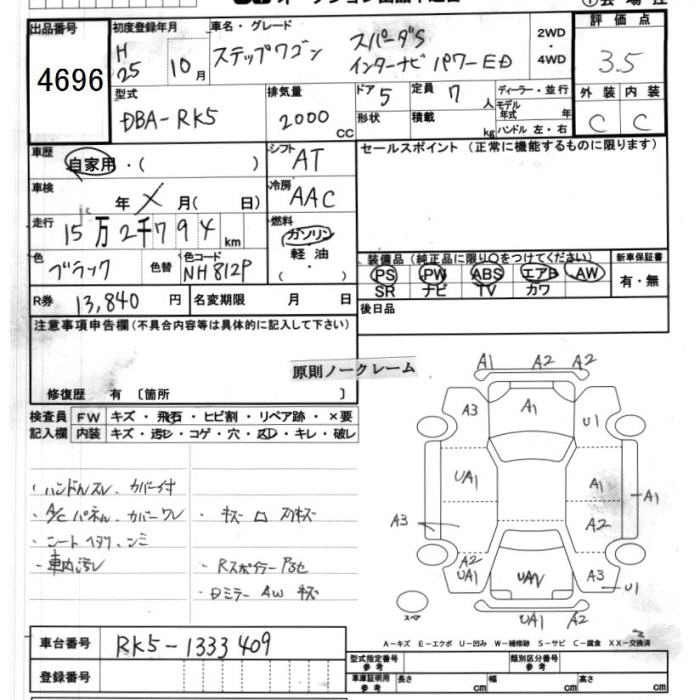 出品番号
4696
初度登録年月
H 25 10月
車名・グレード
ステップワゴン スパーダS
インターナビ パワーED
2WD
・
4WD
評価点
3.5
型式
DBA-RK5
排気量
2000 CC
ドア 5
形状
定員 7 人
積載 kg
ディーラー・並行
モデル年式 年
ハンドル 左・右
外装 内装
C C
車歴
自家用・( )
シフト AT
セールスポイント (正常に機能するものに限ります)
車検
年 月( 日)
冷房 AAC
走行
15万2千794 km
燃料
ガソリン
軽油
・
( )
色
ブラック
色替
色コード
NH812P
装備品 (純正品に限り○をつけてください)
PS PW ABS エアB AW
SR ナビ TV カワ
新車保証書
有・無
R券 13,840 円
名変期限 月 日
後日品
注意事項申告欄(不具合内容等は具体的に記入して下さい)
原則ノークレーム
修復歴 有 〔箇所 〕
検査員 FW キズ・飛石・ヒビ割・リペア跡・×要
記入欄 内装 キズ・汚レ・コゲ・穴・ネジ・キレ・破レ
・ハンドルスレ、カバー付
・A/Cパネル、カバーワレ
・シートヘタリ、シミ
・車内汚レ
・キズ ロ スリキズ
・Rスポイラー
・Dミラー AW キズ
A1 A2 A2
A3 A1 U1
UA1 A1 A1
A3 A2
A2
UA1 UA1 A3 U1
UA1 A2
スペア
A-キズ E-エクボ U-凹み W-補修跡 S-サビ C-腐食 XX-交換済
車台番号 RK5-1333409
登録番号
型式指定番号 参考
類別区分番号 参考
車庫証明用 参考 長さ cm 幅 cm 高さ cm